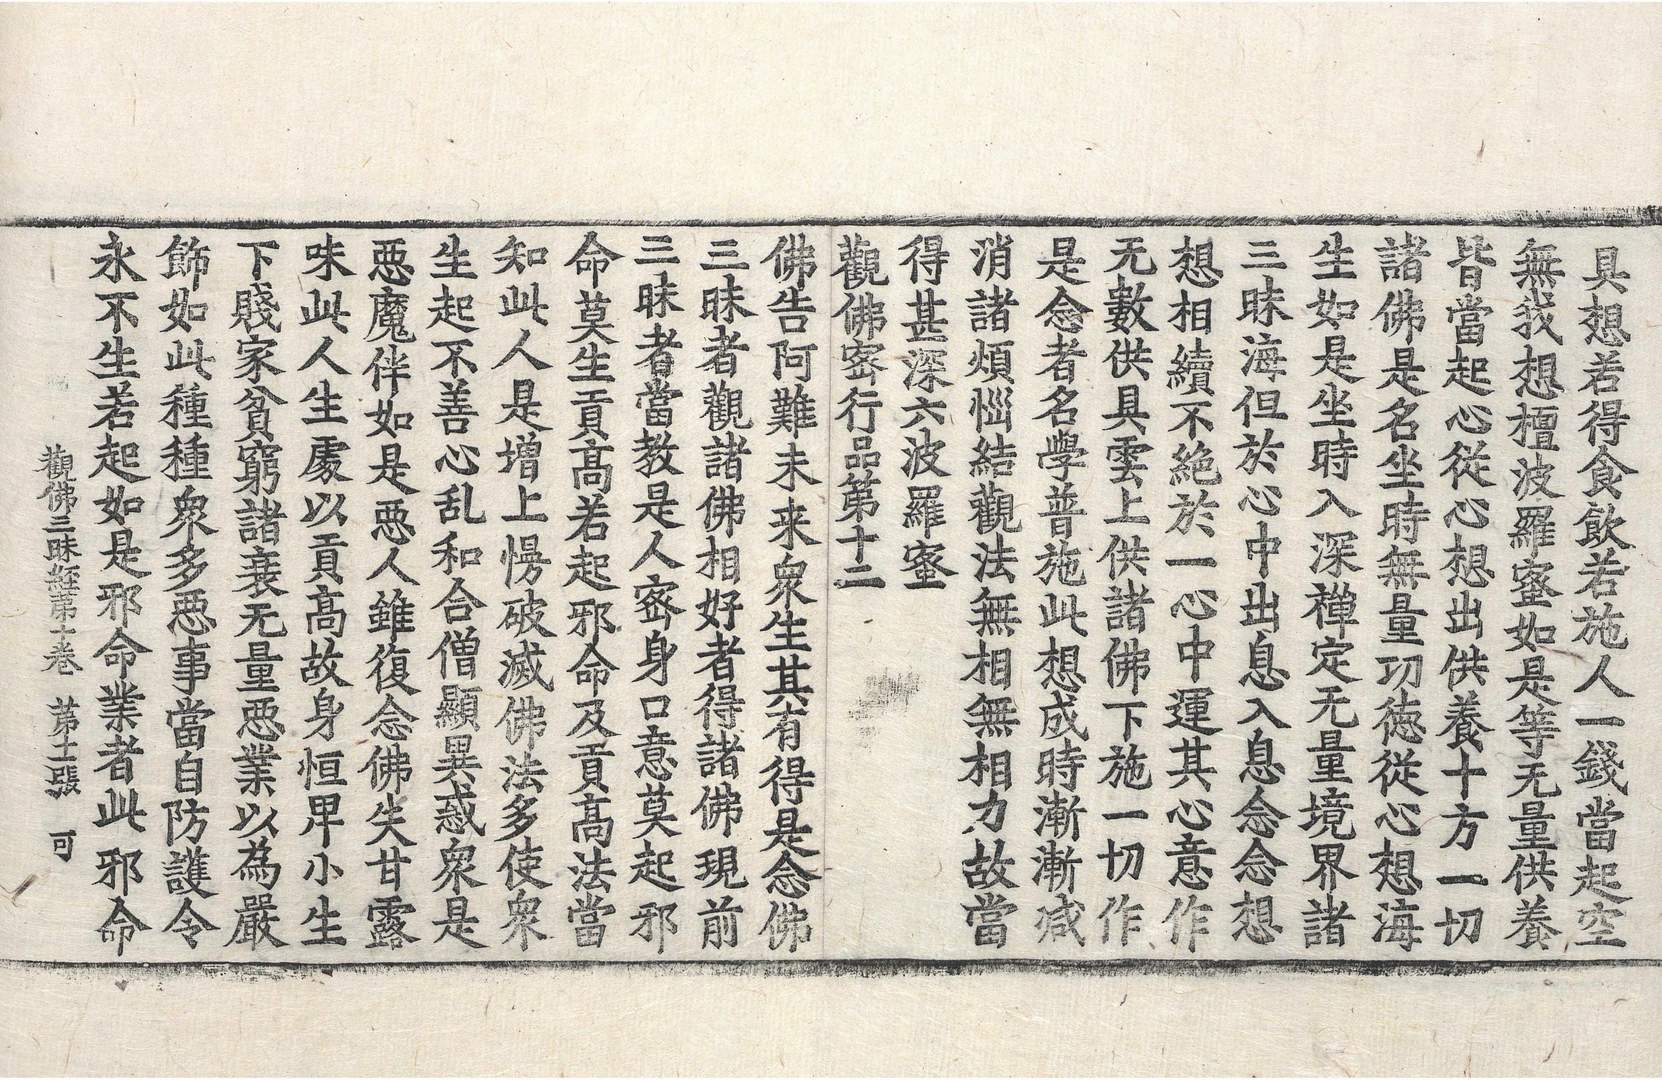 具想若得食飲若施人一錢當起空
無我想檀波羅蜜如是等无量供養
皆當起心從心想出供養十方一切
諸佛是名坐時無量功徳從心想海
生如是坐時入深禪定无量境界諸
三昧海但於心中出息入息念念想
想相續不絶於一心中運其心意作
无數供具雲上供諸佛下施一切作
是念者名學普施此想成時漸漸減
消諸煩惱結觀法無相無相力故當
得甚深六波羅蜜
觀佛密行品第十二
佛告阿難未来衆生其有得是念佛
三昧者觀諸佛相好者得諸佛現前
三昧者當教是人密身口意莫起邪
命莫生貢髙若起邪命及貢髙法當
知此人是增上慢破滅佛法多使衆
生起不善心乱和合僧顯異惑衆是
惡魔伴如是惡人雖復念佛失甘露
味此人生處以貢髙故身恒卑小生
下賤家貧窮諸衰无量惡業以為嚴
飾如此種種衆多惡事當自防護令
永不生若起如是邪命業者此邪命
觀佛三昧経第十卷 第十二張 可